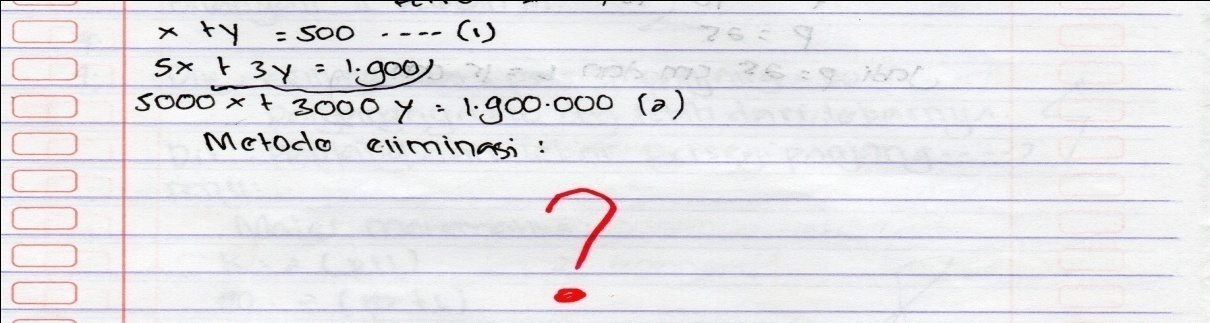 x + y = 500 ---- (1)
5x + 3y = 1.900
5000 x + 3000 y = 1.900.000 (2)
Metode eliminasi :
?